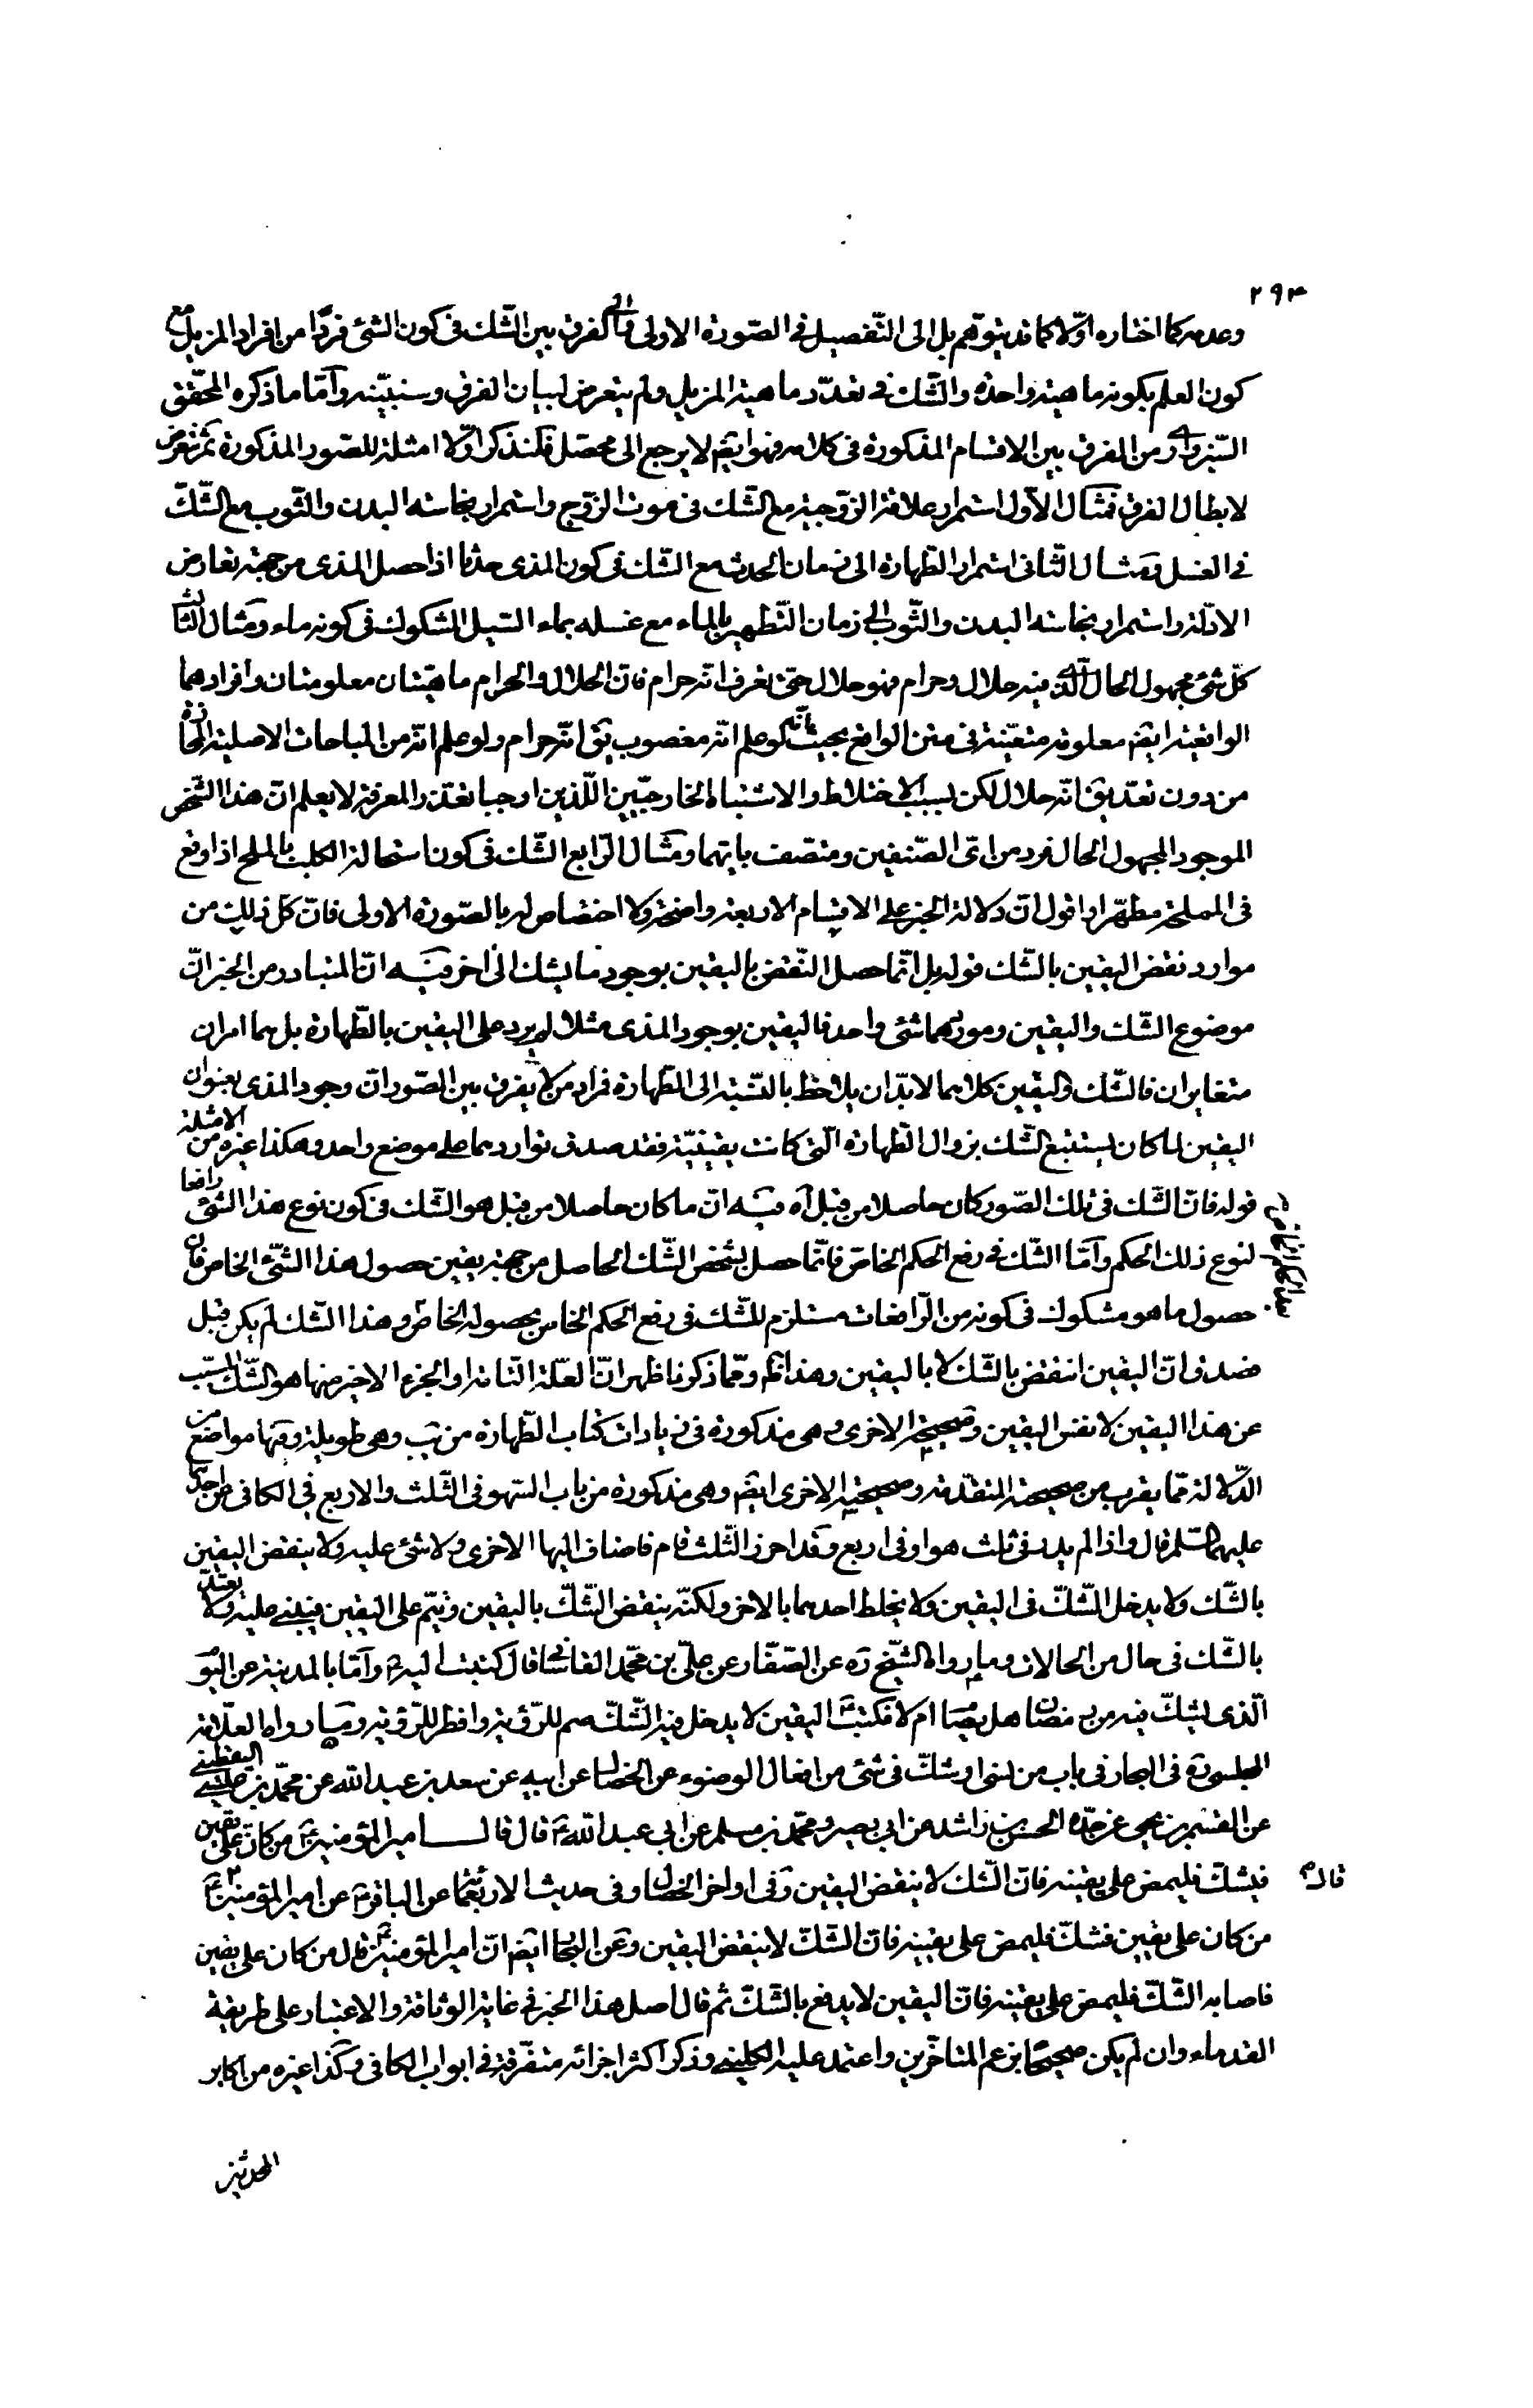 ٢٩٣
وعدمه كما اختاره اوّلا كما قد يتوهم بل الى التّفصيل فى الصّورة الاولى والى الفرق بين الشّك فى كون الشئ فردًا من افراد المزيل مع
كون العلم بكونه ماهية واحدة والشّك فى تعدّد ماهية المزيل ولم يتعرض لبيان الفرق وسنبيّنه وامّا ما ذكره المحقّق
السّبزوارى من الفرق بين الاقسام المذكورة فى كلامه فهو ايضم لا يرجع الى محصّل فلنذكر اوّلا امثلة للصّور المذكورة ثم نتعرض
لابطال الفرق فمثال الاوّل استمرار علاقة الزّوجية مع الشّك فى موت الزّوج واستمرار نجاسة البدن والثّوب مع الشّكّ
فى الغسل ومثال الثّانى استمرار الطّهارة الى زمان الحدث مع الشّك فى كون المذى حدثا اذا حصل المذى من جهة تعارض
الادلّة واستمرار نجاسة البدن والثّوب الى زمان التّطهير بالماء مع غسله بماء السّيل المشكوك فى كونه ماء ومثال الثّالث
كلّ شئ مجهول الحال الّذى فيه حلال وحرام فهو حلال حتى تعرف انّه حرام فانّ الحلال والحرام ماهيّتان معلومتان وافرادهما
الواقعيّة ايضم معلومة متعيّنة فى متن الواقع بحيث انّه لو علم انّه مغصوب يقا انّه حرام ولو علم انّه من المباحات الاصلية المحازة
من دون تعد يقا انّه حلال لكن بسبب الاختلاط والاشتباه الخارجيّين اللّذين اوجبا تعذر المعرفة لا يعلم انّ هذا الشّخص
الموجود المجهول الحال فرد من اىّ الصّنفين ومتّصف بايّهما ومثال الرّابع الشّك فى كون استحالة الكلب بالملح اذا وقع
فى المملحة مطهّرا اقول انّ دلالة الخبر على الاقسام الاربعة واضحة ولا اختصاص له بالصّورة الاولى فانّ كلّ ذلك من
موارد نقض اليقين بالشّك قوله بل انّما حصل النّقض باليقين بوجود ما يشك الى اخر فيه انّ المتبادر من الخبر انّ
موضوع الشّك واليقين وموردهما شئ واحد فاليقين بوجود المذى مثلا لم يرد على اليقين بالطّهارة بل هما امران
متغايران فالشّك واليقين كلاهما لا بدّ ان يلاحظ بالنّسبة الى الطّهارة فمراد من لا يفرق بين الصّور انّ وجود المذى بعنوان
اليقين لما كان يستتبع الشّك بزوال الطّهارة الّتى كانت يقينيّة فقد صدق تواردهما على موضع واحد وهكذا غيره من الامثلة
قوله فانّ الشّك فى تلك الصّور كان حاصلا من قبل اه فيه انّ ما كان حاصلا من قبل هو الشّك فى كون نوع هذا الشّئ رافعا
لنوع ذلك الحكم وامّا الشّك فى رفع الحكم الخاصّ فانّما حصل بشخص الشّك الحاصل من جهة يقين حصول هذا الشّئ الخاصّ فانّ
حصول ما هو مشكوك فى كونه من الرّافعات مستلزم للشّك فى رفع الحكم الخاصّ بحصوله الخاصّ وهذا الشّك لم يكن قبل
فصدق انّ اليقين انتقض بالشّك لا باليقين وهذا ظم وممّا ذكرنا ظهر انّ العلّة التّامّة او الجزء الاخير منها هو الشّك المسبّب
عن هذا اليقين لا نفس اليقين وصحيحته الاخرى وهى مذكورة فى زيادات كتاب الطّهارة من يب وهى طويلة وفيها مواضع من
الدّلالة ممّا يقرب من صحيحته المتقدّمة وصحيحته الاخرى ايضم وهى مذكورة من باب السّهو فى الثّلث والاربع فى الكافى عن احدهما
عليهما السّلم قال واذا لم يدر فى ثلث هو او فى اربع وقد احرز الثّلث قام فاضاف اليها الاخرى ولا شئ عليه ولا ينقض اليقين
بالشّك ولا يدخل الشّكّ فى اليقين ولا يخلط احدهما بالاخر ولكنّه ينقض الشّكّ باليقين ويتمّ على اليقين فيبنى عليه ولا يعتدّ
بالشّك فى حال من الحالات وما رواه الشّيخ ره عن الصّفّار عن علىّ بن محمّد القاسانى قال كتبت اليه وانا بالمدينة عن اليوم
الّذى يشكّ فيه من رمضان هل يصام ام لا فكتب اليقين لا يدخل فيه الشّكّ صم للرّؤية وافطر للرّؤية وما رواه العلّامة
المجلسى ره فى البحار فى باب من نسى او شكّ فى شئ من افعال الوضوء عن الخصال عن ابيه عن سعد بن عبد الله عن محمّد بن عيسى اليقطينى
عن القسم بن يحيى عن جدّه الحسن بن راشد عن ابى بصير ومحمّد بن مسلم عن ابى عبد الله ع قال قال امير المؤمنين ع من كان على يقين
فشكّ فليمض على يقينه فانّ الشّك لا ينقض اليقين وفى اواخر الخصال فى حديث الاربعمائة عن الباقر ع عن امير المؤمنين ع قال
من كان على يقين فشكّ فليمض على يقينه فانّ الشّكّ لا ينقض اليقين وعن البحار ايضم انّ امير المؤمنين ع قال من كان على يقين
فاصابه الشّكّ فليمض على يقينه فانّ اليقين لا يدفع بالشّكّ ثم قال اصل هذا الخبر فى غاية الوثاقة والاعتبار على طريقة
القدماء وان لم يكن صحيحًا بزعم المتاخّرين واعتمد عليه الكلينى وذكر اكثر اجزائه متفرّقة فى ابواب الكافى وكذا غيره من اكابر
المحدثين